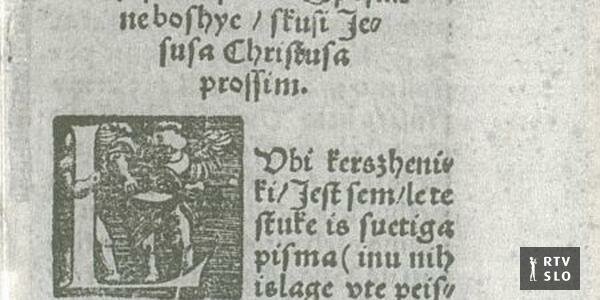 neboshye / skusi Je⸗
susa Christusa
prossim.
LVbi kerszheni⸗
ki/ Jest sem/ le te
stuke is suetiga
pisma ( inu nih
islage vte peis⸗
RTV
SLO